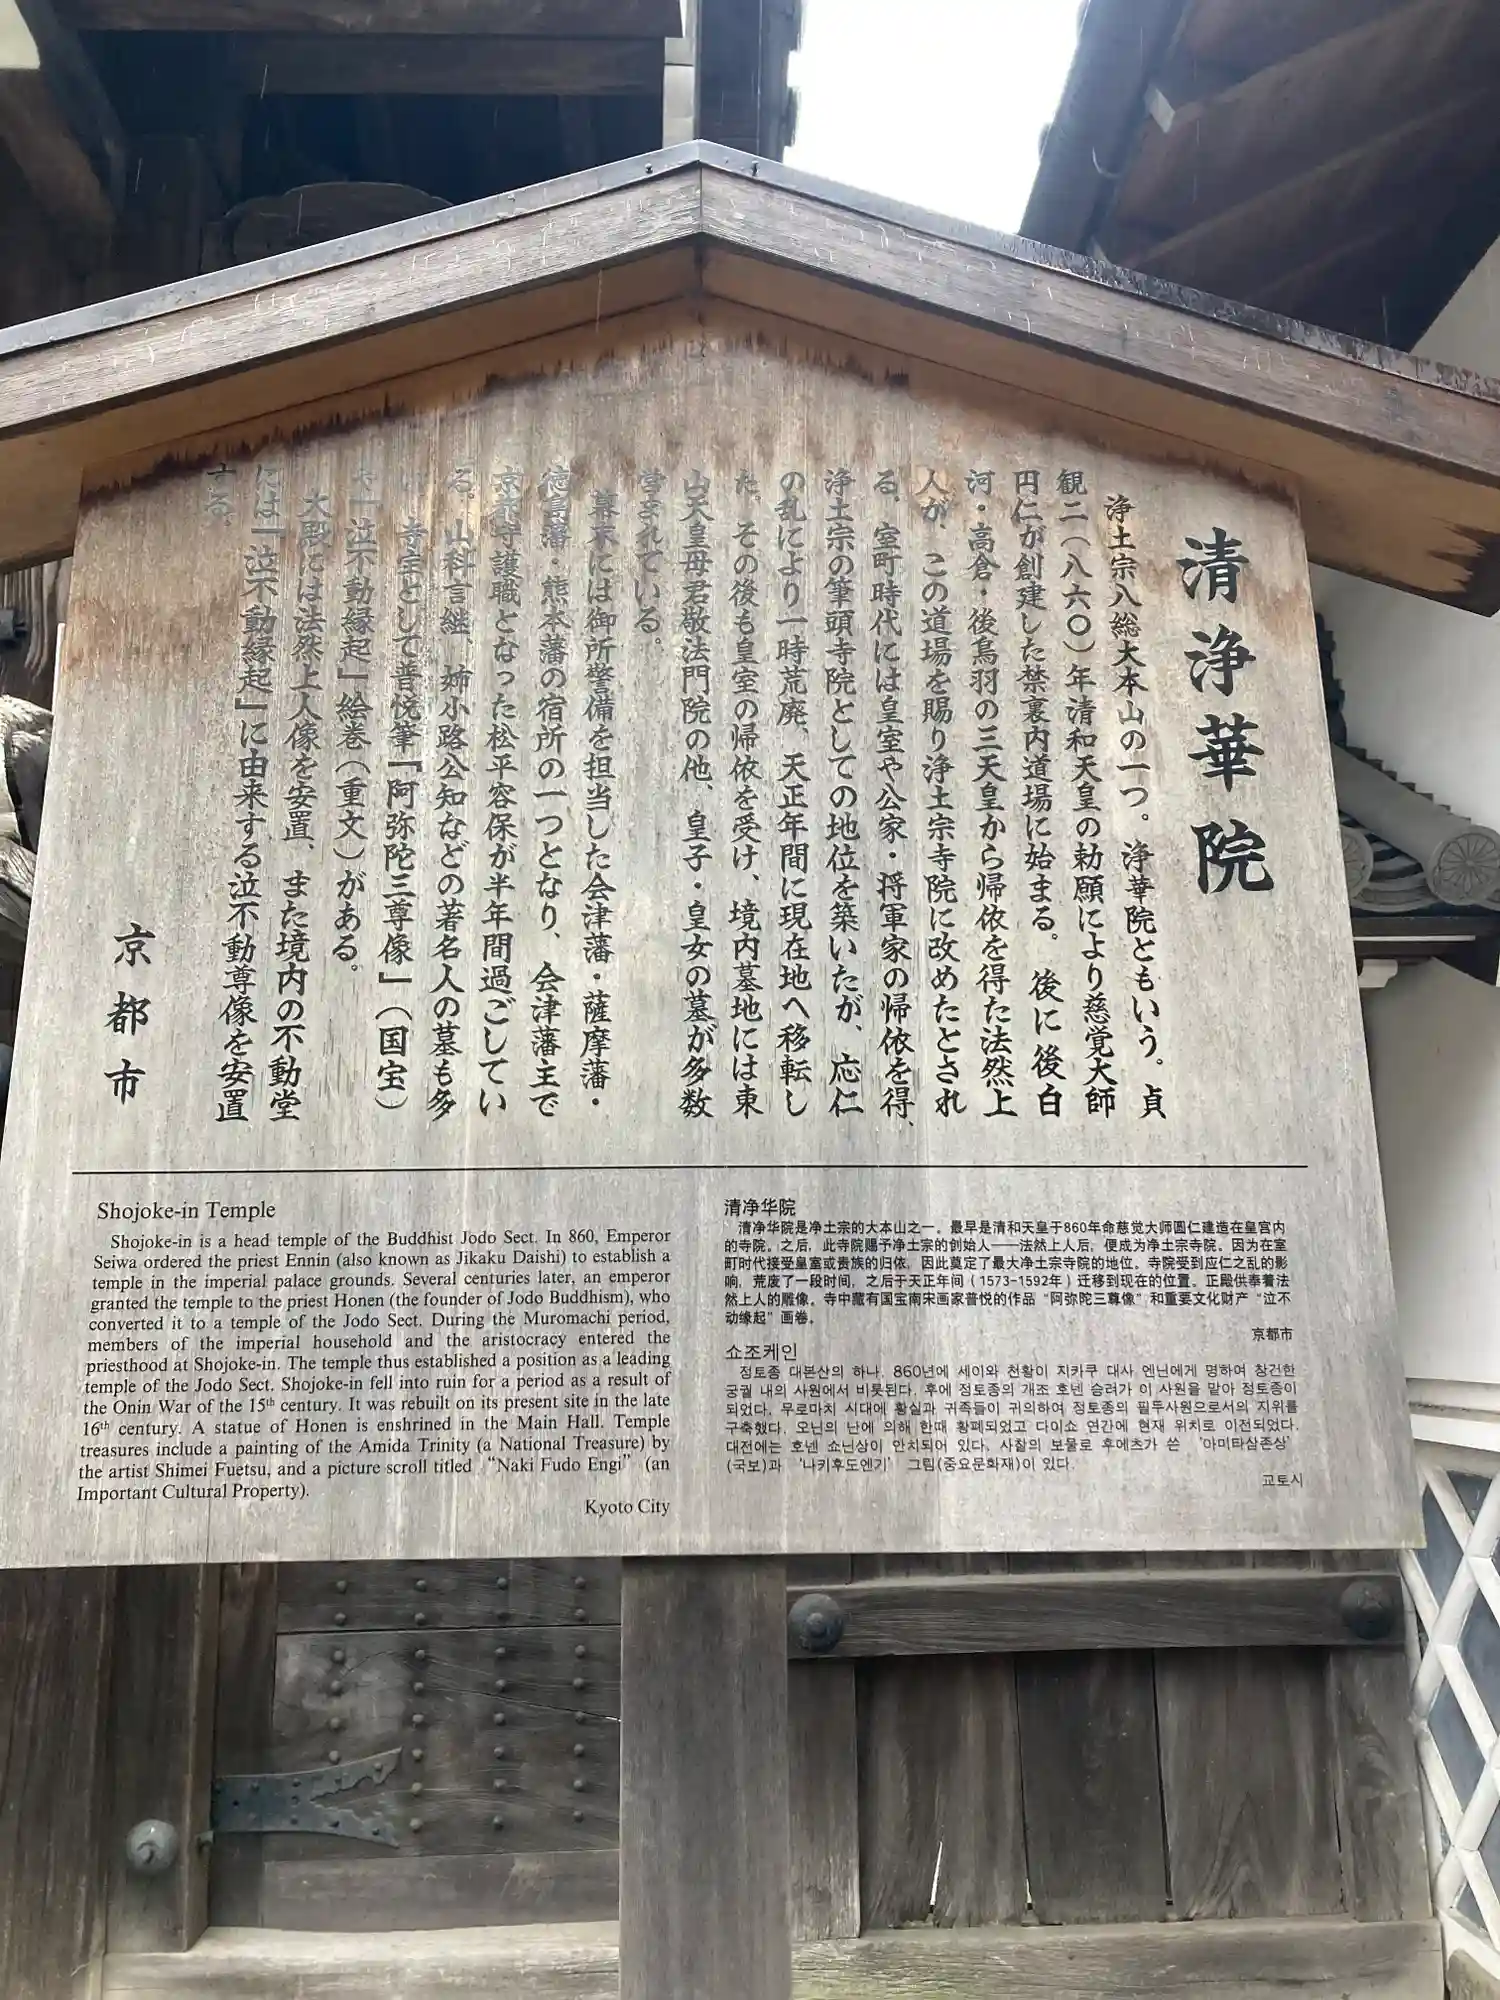 清浄華院
浄土宗八総大本山の一つ。浄華院ともいう。貞
観二(八六〇)年清和天皇の勅願により慈覚大師
円仁が創建した禁裏内道場に始まる。後に後白
河・高倉・後鳥羽の三天皇から帰依を得た法然上
人が、この道場を賜り浄土宗寺院に改めたとされ
る。室町時代には皇室や公家・将軍家の帰依を得、
浄土宗の筆頭寺院としての地位を築いたが、応仁
の乱により一時荒廃、天正年間に現在地へ移転し
た。その後も皇室の帰依を受け、境内墓地には東
山天皇母君敬法門院の他、皇子・皇女の墓が多数
営まれている。
幕末には御所警備を担当した会津藩・薩摩藩・
徳島藩・熊本藩の宿所の一つとなり、会津藩主で
京都守護職となった松平容保が半年間過ごしてい
る。山科言継、姉小路公知などの著名人の墓も多
い。寺宝として普悦筆『阿弥陀三尊像』(国宝)
や『泣不動縁起』絵巻(重文)がある。
大殿には法然上人像を安置、また境内の不動堂
には『泣不動縁起』に由来する泣不動尊像を安置
する。
京都市
Shojoke-in Temple
Shojoke-in is a head temple of the Buddhist Jodo Sect. In 860, Emperor
Seiwa ordered the priest Ennin (also known as Jikaku Daishi) to establish a
temple in the imperial palace grounds. Several centuries later, an emperor
granted the temple to the priest Honen (the founder of Jodo Buddhism), who
converted it to a temple of the Jodo Sect. During the Muromachi period,
members of the imperial household and the aristocracy entered the
priesthood at Shojoke-in. The temple thus established a position as a leading
temple of the Jodo Sect. Shojoke-in fell into ruin for a period as a result of
the Onin War of the 15th century. It was rebuilt on its present site in the late
16th century. A statue of Honen is enshrined in the Main Hall. Temple
treasures include a painting of the Amida Trinity (a National Treasure) by
the artist Shimei Fuetsu, and a picture scroll titled “Naki Fudo Engi” (an
Important Cultural Property).
Kyoto City
清净华院
清净华院是净土宗的大本山之一。最早是清和天皇于860年命慈觉大师圆仁建造在皇宫内
的寺院。之后，此寺院赐予净土宗的创始人——法然上人后，便成为净土宗寺院。因为在室
町时代接受皇室或贵族的归依，因此奠定了最大净土宗寺院的地位。寺院受到应仁之乱的影
响，荒废了一段时间，之后于天正年间（1573-1592年）迁移到现在的位置。正殿供奉着法
然上人的雕像。寺中藏有国宝南宋画家普悦的作品“阿弥陀三尊像”和重要文化财产“泣不
动缘起”画卷。
京都市
쇼조케인
정토종 대본산의 하나. 860년에 세이와 천황이 지카쿠 대사 엔닌에게 명하여 창건한
궁궐 내의 사원에서 비롯된다. 후에 정토종의 개조 호넨 승려가 이 사원을 맡아 정토종이
되었다. 무로마치 시대에 황실과 귀족들이 귀의하여 정토종의 필두사원으로서의 지위를
구축했다. 오닌의 난에 의해 한때 황폐되었고 다이쇼 연간에 현재 위치로 이전되었다.
대전에는 호넨 쇼닌상이 안치되어 있다. 사찰의 보물로 후에츠가 쓴 '아미타삼존상'
(국보)과 '나키후도엔기' 그림(중요문화재)이 있다.
교토시